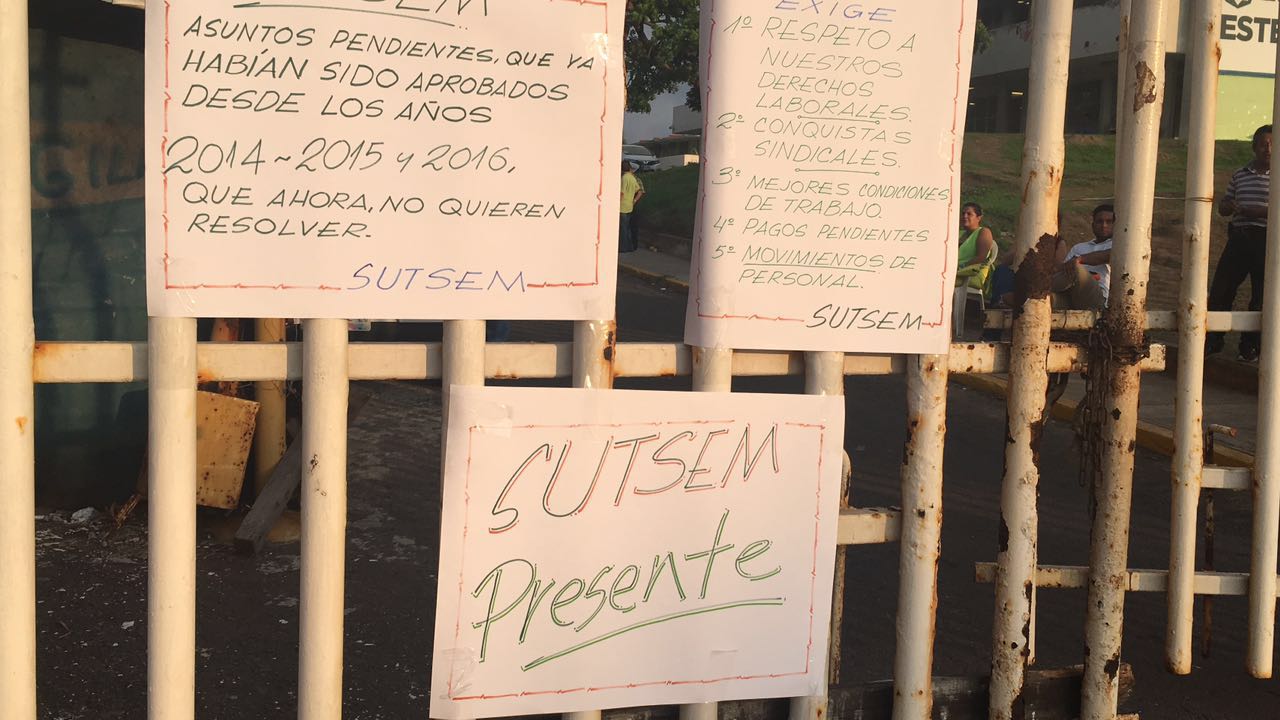 SUTSEM
ASUNTOS PENDIENTES, QUE YA
HABÍAN SIDO APROBADOS
DESDE LOS AÑOS
2014-2015 y 2016,
QUE AHORA, NO QUIEREN
RESOLVER.-
SUTSEM
EXIGE
1º RESPETO A
NUESTROS
DERECHOS
LABORALES.
2º CONQUISTAS
SINDICALES.
3º MEJORES CONDICIONES
DE TRABAJO.
4º PAGOS PENDIENTES
5º MOVIMIENTOS DE
PERSONAL.
SUTSEM
SUTSEM
Presente
ESTE